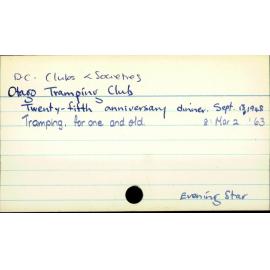 D.C. Clubs & Societies
Otago Tramping Club
Twenty-fifth anniversary dinner. Sept. 1948
Tramping, for one and old. 2 Mar 2 '63
Evening Star